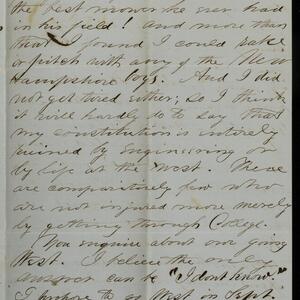 the best mower he ever had
in his field! And more than
that I found I could rake
or pitch with any of the New
Hampshire boys. And I did
not get tired either; so I think
it will hardly do to say that
my constitution is entirely
ruined by engineering or
by life at the West. There
are comparatively few who
are not injured more merely
by getting through College.
You enquire about our going
West. I believe the only
answer can be "I dont know."
I propose to go West in Sept.